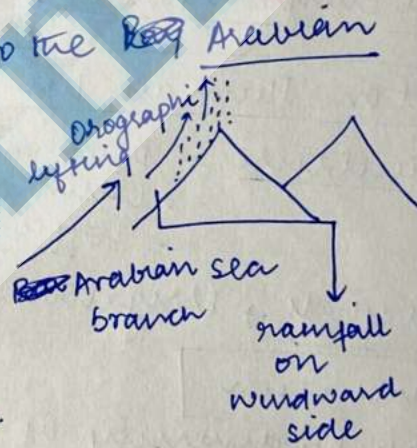 o the Arabian
Orographic
lifting
Arabian sea
branch
rainfall
on
windward
side